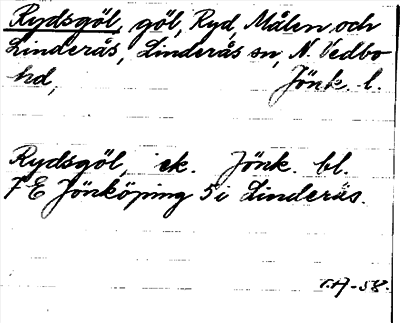 Rydsgöl, göl, Ryd, Målen och
Linderås, Linderås sn, N. Vedbo
hd, Jönk. l.
Rydsgöl, ek. Jönk. bl.
7 E Jönköping 5 i Linderås.
T.H-58.